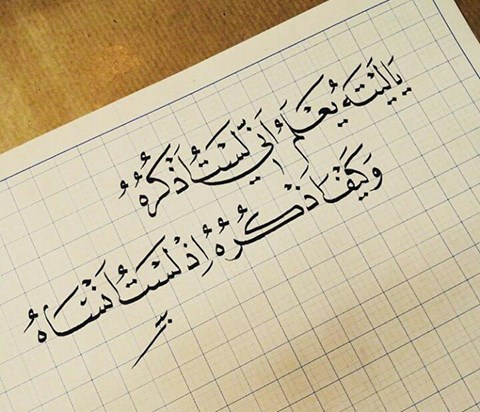 يَا لَيْتَهُ يُعْلَمُ أَنِّي لَسْتُ أَذْكُرُهُ
وَكَيْفَ اذْكُرُهُ إِذْ لَسْتُ أَنْسَاهُ